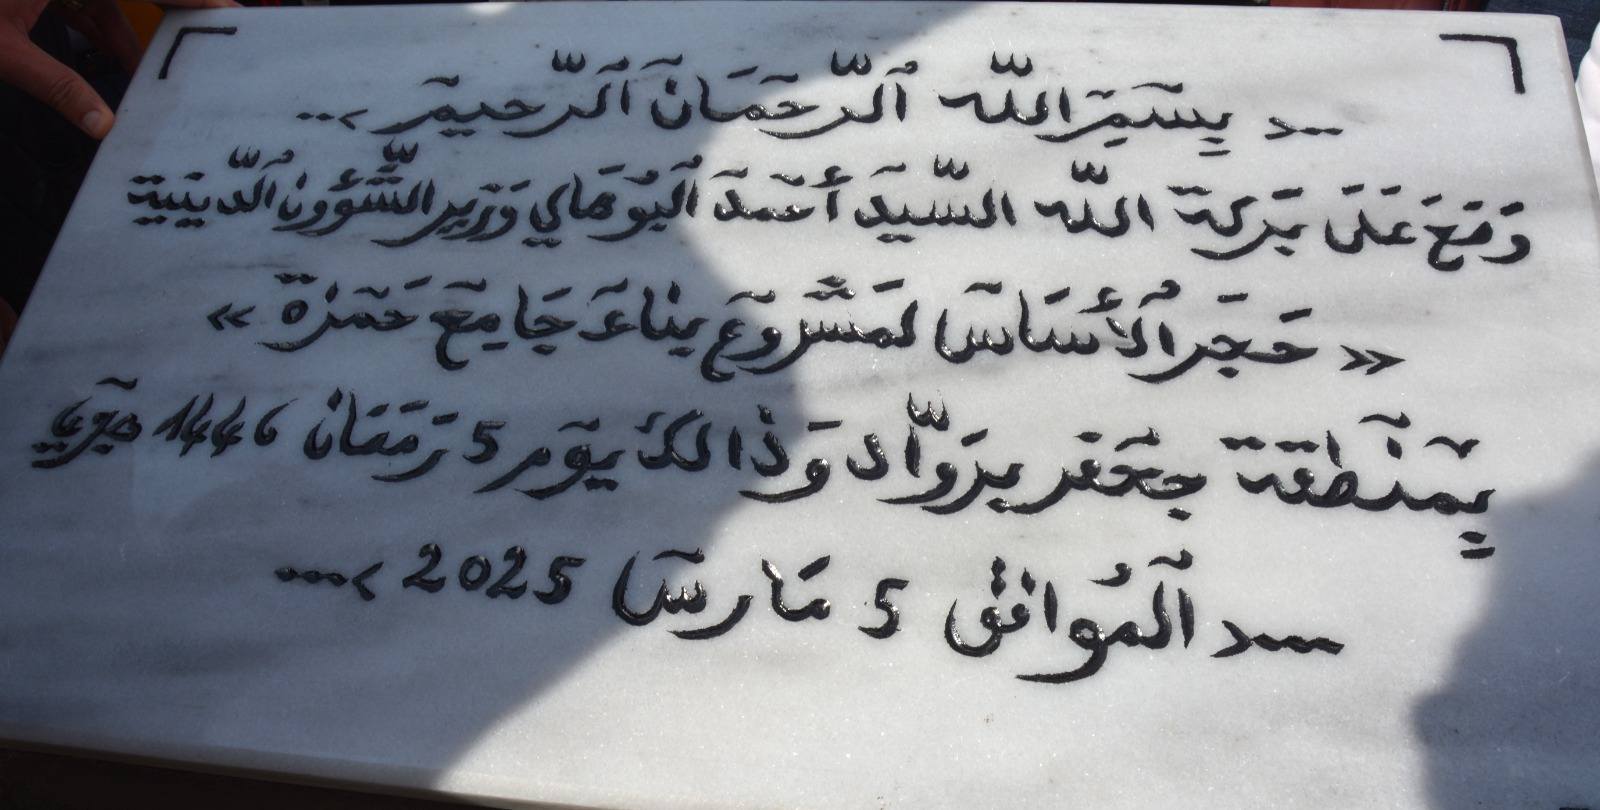 بِسْمِ اللّٰه الرّحمَان الرّحيم
وَضَعَ عَلَى بَرَكة اللّٰه السّيد أحمد البُوهَالي وَزير الشّؤون الدّينية
« حَجَر الأسَاس لمَشروع بناء جَامع حَمزة »
بِمنطقة جعفر بروّاد وَذالك يوم 5 رَمضان 1446 هجري
المُوافق 5 مَارس 2025